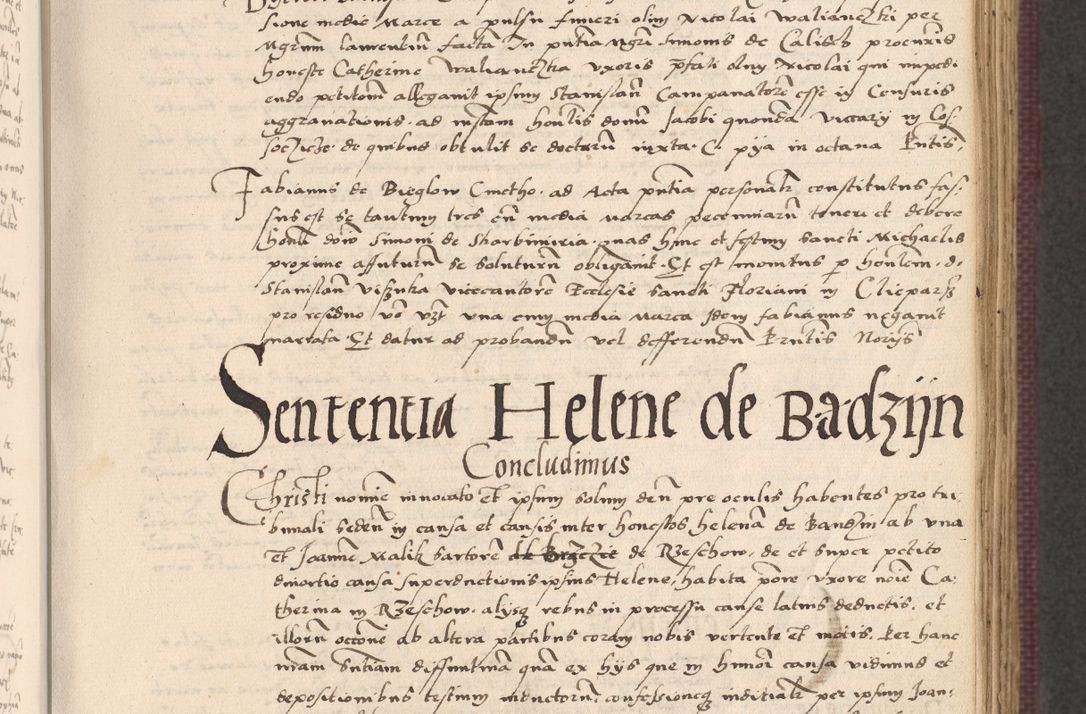 sione medie Marce a pulsu funeri olim Nicolai Waliantzki per
Mgrum laurentiu facta In pntia Mgri Simonis de Calisch procuris
honeste Catherine Waliantzka vxoris pfati olim Nicolai qui impedi
endo petitom allegauit ipsum Stanislau Campanatore esse in Censuris
aggrauationis ad instam honlis domi Jacobi quonda Viccarij in
de quibus obtulit se docturu iuxta C in octaua
Fabianus de Bieglow Cmetho ad Acta pntia personalr constitutus fas
sus est se tautmy tres cu media marcas pecuniaru teneri et debere
honli domi Simoni de Skarbimiria quas hinc et festum Sancti Michaelis
proxime affuturum se soluturu obligauit Et est monitus p honlem d
Stanislau Viszuka vicecantore Ecclesie Sancti Floriani in Clieparz
pro residuo vo vzt vna cum media Marca Idem fabianus negauit
narrata Et datur ad probandu vel defferendu Prntis Norijs
Sententia Helene de Badzijn
Concludimus
Christi nomine inuocato Et ipsum solum deu pre oculis habentes pro tri
bunali seden in causa et causis inter honestos helena de Bandzin ab vna
Et Joanne Malik sartore de Rzeschow de et super petito
diuortio causa superductionis ipsius Helene, habita pore vxore noie Ca
therina in Rzeschow alijsq rebus in processu cause latius deductis et
illoru occone ab altera partibus coram nobis vertente Et motis Per hanc
nram sntiam diffinitiua qua ex hijs que in hmoi causa vidimus et
depositionibus testium inductoru confessioneq iuditialr per ipsum Joan